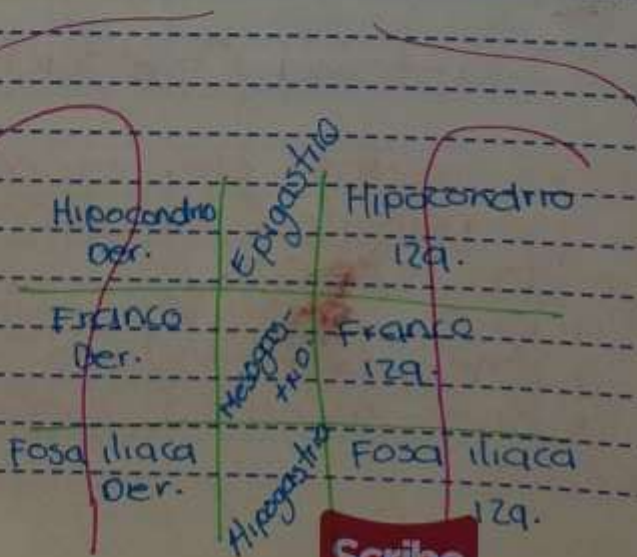 Hipocondrio
Der.
Epigastrio
Hipocondrio
Izq.
Franco
Der.
Mesogas-
trio.
Franco
Izq.
Fosa iliaca
Der.
Hipogastrio
Fosa iliaca
Izq.
Scribe